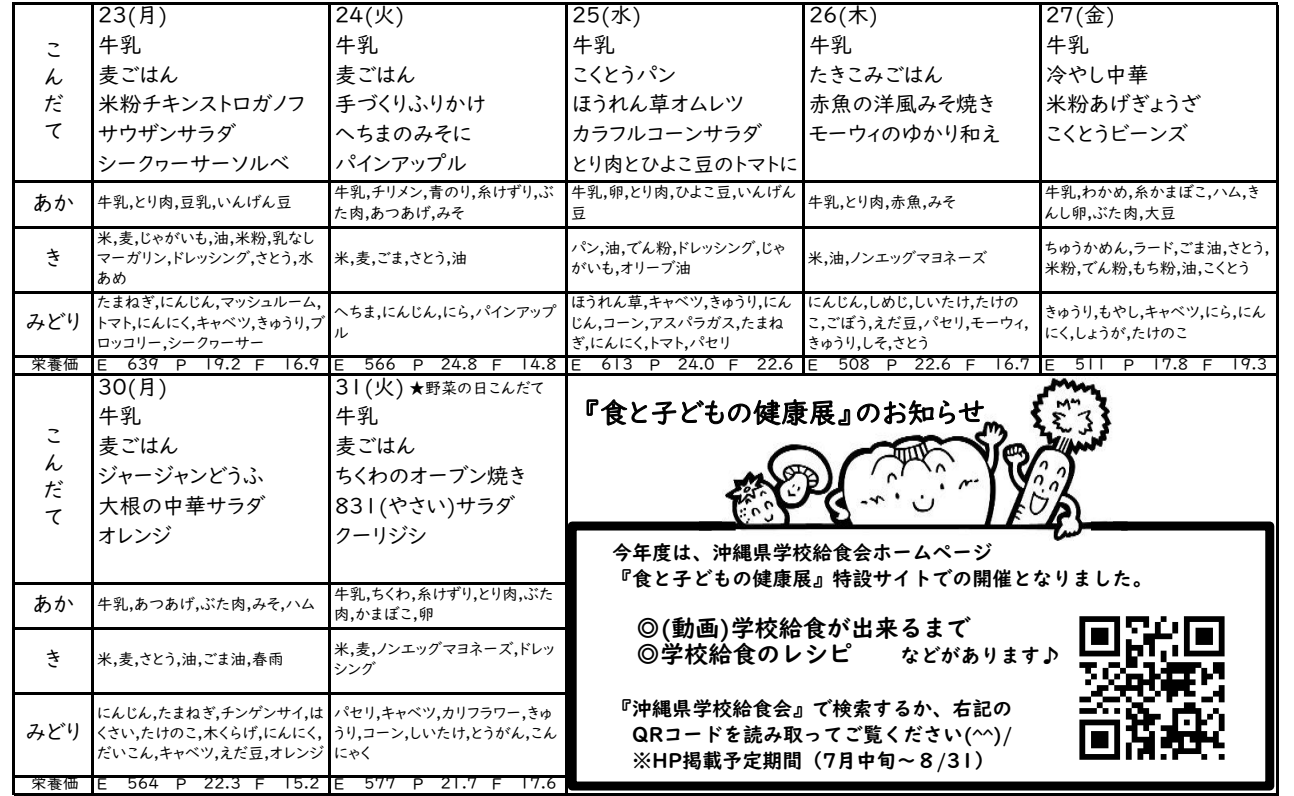 こんだて
23(月)
牛乳
麦ごはん
米粉チキンストロガノフ
サウザンサラダ
シークヮーサーソルベ
24(火)
牛乳
麦ごはん
手づくりふりかけ
へちまのみそに
パインアップル
25(水)
牛乳
こくとうパン
ほうれん草オムレツ
カラフルコーンサラダ
とり肉とひよこ豆のトマトに
26(木)
牛乳
たきこみごはん
赤魚の洋風みそ焼き
モーウィのゆかり和え
27(金)
牛乳
冷やし中華
米粉あげぎょうざ
こくとうビーンズ
あか
牛乳,とり肉,豆乳,いんげん豆
牛乳,チリメン,青のり,糸けずり,ぶ
た肉,あつあげ,みそ
牛乳,卵,とり肉,ひよこ豆,いんげん
豆
牛乳,とり肉,赤魚,みそ
牛乳,わかめ,糸かまぼこ,ハム,き
んし卵,ぶた肉,大豆
き
米,麦,じゃがいも,油,米粉,乳なし
マーガリン,ドレッシング,さとう,水
あめ
米,麦,ごま,さとう,油
パン,油,でん粉,ドレッシング,じゃ
がいも,オリーブ油
米,油,ノンエッグマヨネーズ
ちゅうかめん,ラード,ごま油,さとう,
米粉,でん粉,もち粉,油,こくとう
みどり
たまねぎ,にんじん,マッシュルーム,
トマト,にんにく,キャベツ,きゅうり,ブ
ロッコリー,シークヮーサー
へちま,にんじん,にら,パインアップ
ル
ほうれん草,キャベツ,きゅうり,にん
じん,コーン,アスパラガス,たまね
ぎ,にんにく,トマト,パセリ
にんじん,しめじ,しいたけ,たけの
こ,ごぼう,えだ豆,パセリ,モーウィ,
きゅうり,しそ,さとう
きゅうり,もやし,キャベツ,にら,にん
にく,しょうが,たけのこ
栄養価
E 639 P 19.2 F 16.9
E 566 P 24.8 F 14.8
E 613 P 24.0 F 22.6
E 508 P 22.6 F 16.7
E 511 P 17.8 F 19.3
こんだて
30(月)
牛乳
麦ごはん
ジャージャンどうふ
大根の中華サラダ
オレンジ
31(火) ★野菜の日こんだて
牛乳
麦ごはん
ちくわのオーブン焼き
831(やさい)サラダ
クーリジシ
あか
牛乳,あつあげ,ぶた肉,みそ,ハム
牛乳,ちくわ,糸けずり,とり肉,ぶた
肉,かまぼこ,卵
き
米,麦,さとう,油,ごま油,春雨
米,麦,ノンエッグマヨネーズ,ドレッ
シング
みどり
にんじん,たまねぎ,チンゲンサイ,は
くさい,たけのこ,木くらげ,にんにく,
だいこん,キャベツ,えだ豆,オレンジ
パセリ,キャベツ,カリフラワー,きゅ
うり,コーン,しいたけ,とうがん,こん
にゃく
栄養価
E 564 P 22.3 F 15.2
E 577 P 21.7 F 17.6
『食と子どもの健康展』のお知らせ
今年度は、沖縄県学校給食会ホームページ
『食と子どもの健康展』特設サイトでの開催となりました。
◎(動画)学校給食が出来るまで
◎学校給食のレシピ などがあります♪
『沖縄県学校給食会』で検索するか、右記の
QRコードを読み取ってご覧ください(^^)/
※HP掲載予定期間（7月中旬～8/31）